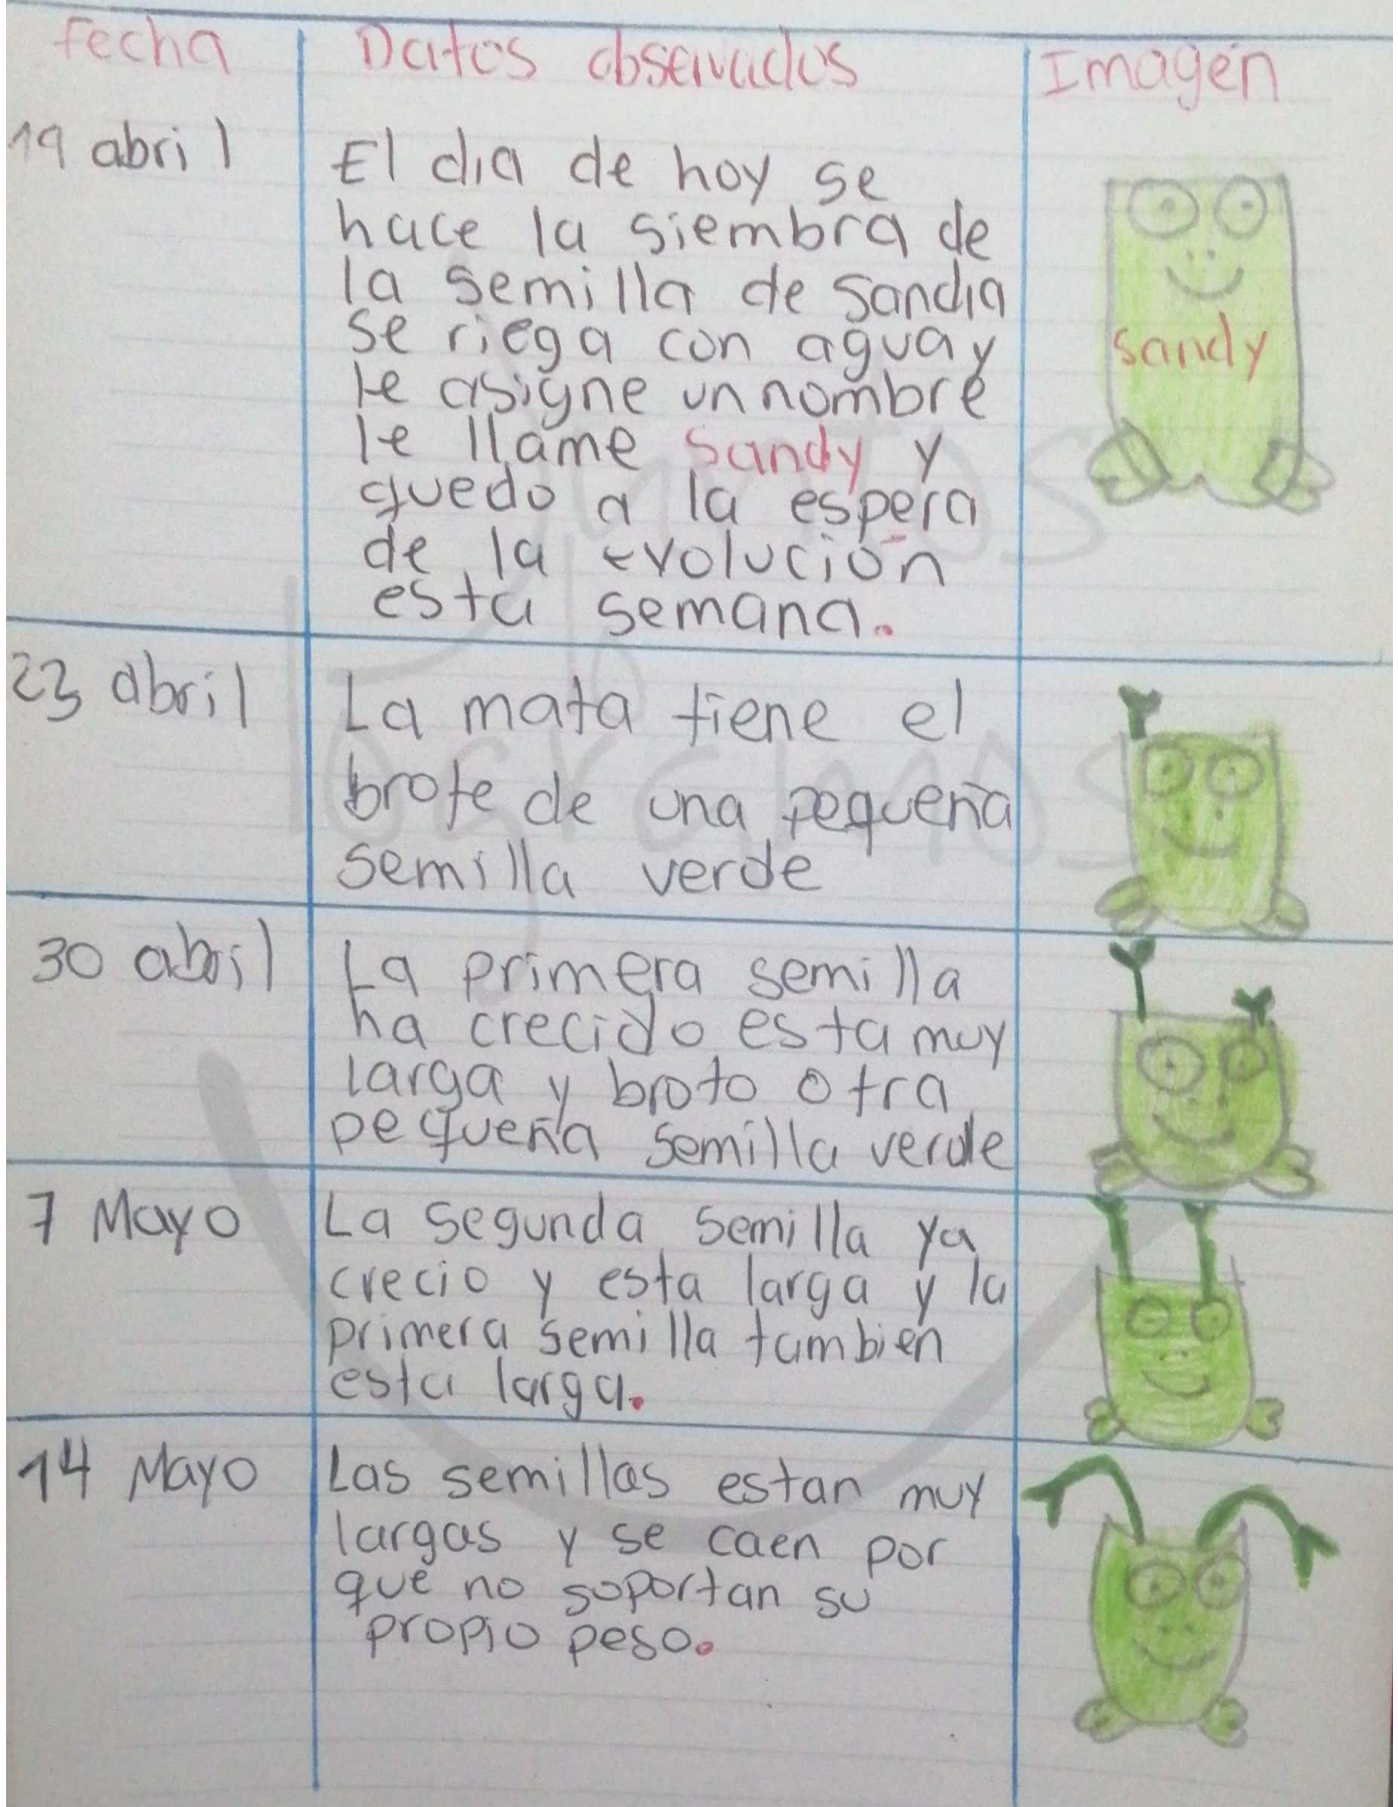 Fecha Datos observados Imagen
19 abril
El dia de hoy se
hace la siembra de
la semilla de sandia
se riega con agua y
le asigne un nombre
le llame Sandy y
quedo a la espera
de la evolución
esta semana.
Sandy
23 abril
La mata tiene el
brote de una pequeña
semilla verde
30 abril
La primera semilla
ha crecido esta muy
larga y broto otra
pequeña semilla verde
7 Mayo
La segunda semilla ya
crecio y esta larga y la
primera semilla tambien
esta larga.
14 Mayo
Las semillas estan muy
largas y se caen por
que no soportan su
propio peso.
Juntos
lo
logramos